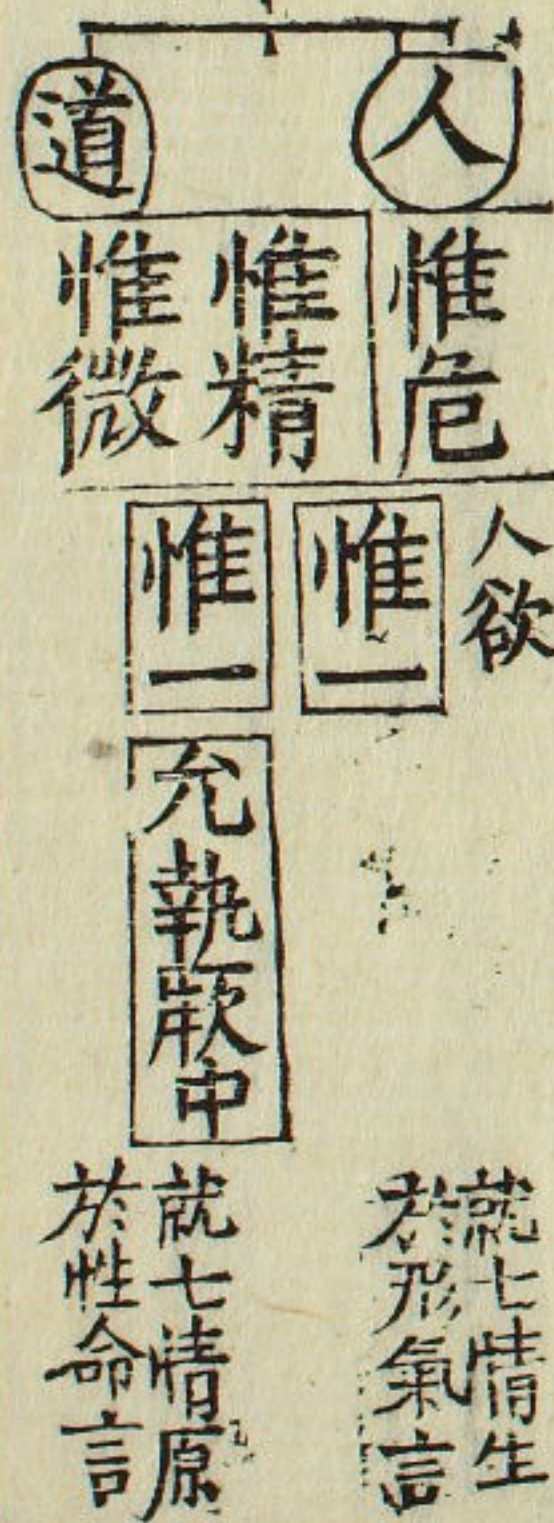 人
道
惟危
惟精
惟微
人欲
惟一
惟一
允執厥中
就七情生
於形氣言
就七情原
於性命言